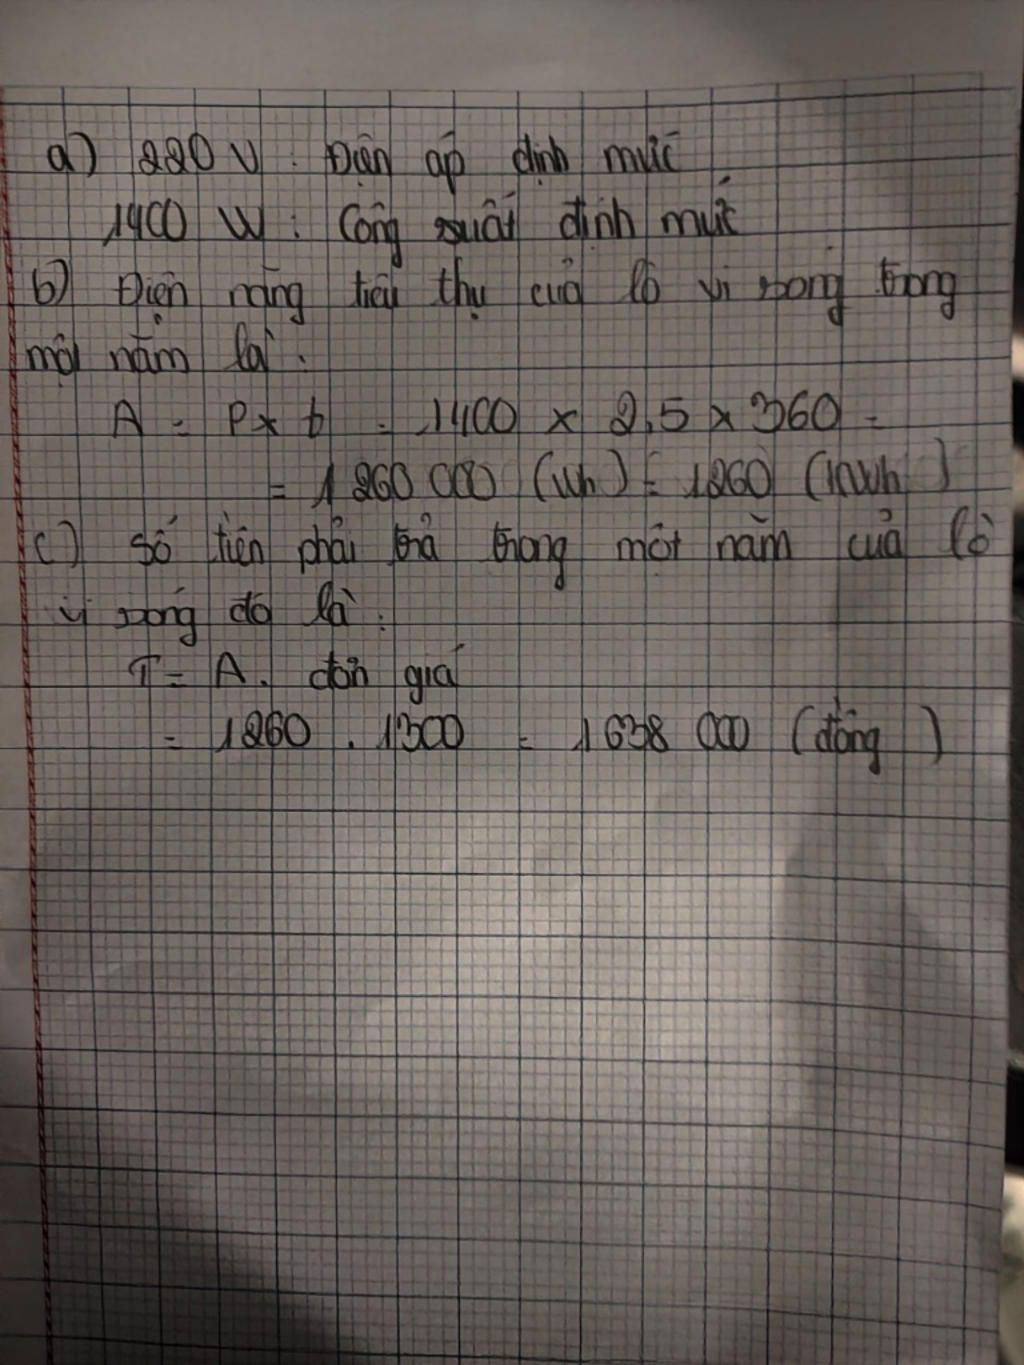 a) 220 V : Điện áp định mức
1400 W : Công suất định mức
b) Điện năng tiêu thụ của lò vi sóng trong
một năm là :
A = P x t = 1400 x 2,5 x 360 =
= 1 260 000 (Wh) = 1260 (KWh)
c) Số tiền phải trả trong một năm của lò
vi sóng đó là :
T = A . đơn giá
= 1260 . 1300 = 1 638 000 (đồng)